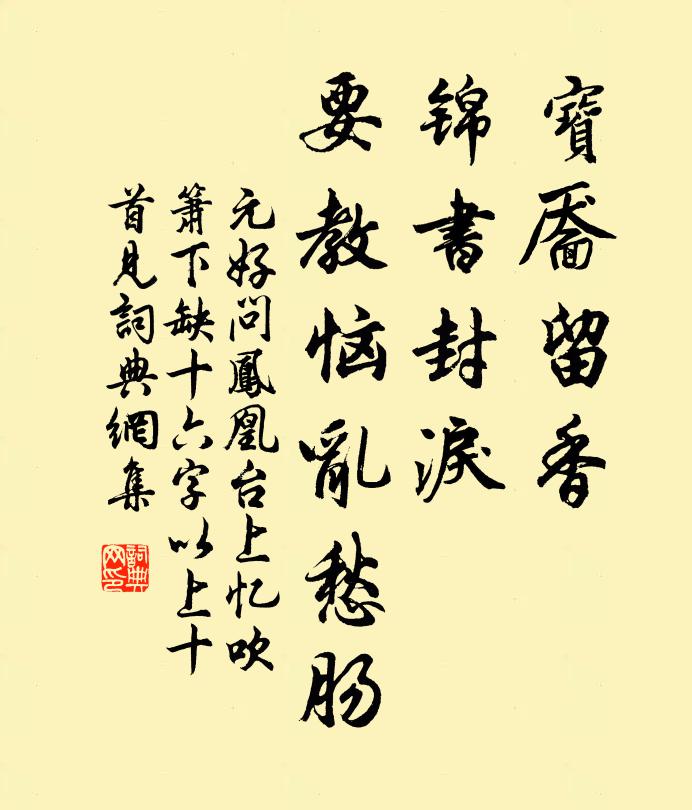 寶靨留香
锦書封淚
要教恼亂愁肠
元好问鳳凰台上忆吹
簫下缺十六字以上十
首見詞典網集
詞典
网印